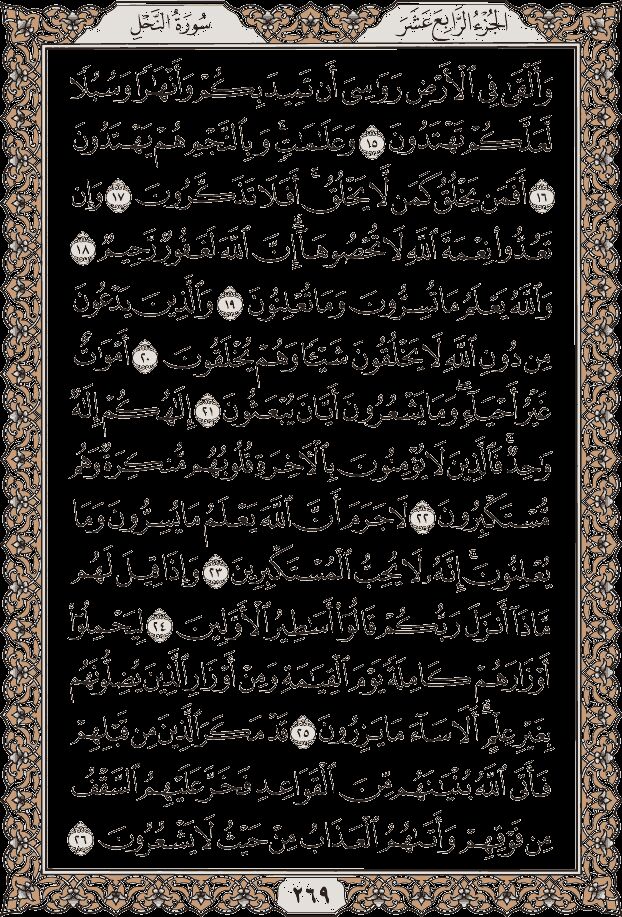 الجُزْءُ الرَّابِعَ عَشَرَ
سُورَةُ النَّحْلِ
وَأَلْقَىٰ فِي ٱلْأَرْضِ رَوَٰسِيَ أَن تَمِيدَ بِكُمْ وَأَنْهَٰرًا وَسُبُلًا
لَّعَلَّكُمْ تَهْتَدُونَ ١٥ وَعَلَٰمَٰتٍ ۚ وَبِٱلنَّجْمِ هُمْ يَهْتَدُونَ
١٦ أَفَمَن يَخْلُقُ كَمَن لَّا يَخْلُقُ ۗ أَفَلَا تَذَكَّرُونَ ١٧ وَإِن
تَعُدُّوا۟ نِعْمَةَ ٱللَّهِ لَا تُحْصُوهَآ ۗ إِنَّ ٱللَّهَ لَغَفُورٌ رَّحِيمٌ ١٨
وَٱللَّهُ يَعْلَمُ مَا تُسِرُّونَ وَمَا تُعْلِنُونَ ١٩ وَٱلَّذِينَ يَدْعُونَ
مِن دُونِ ٱللَّهِ لَا يَخْلُقُونَ شَيْـًٔا وَهُمْ يُخْلَقُونَ ٢٠ أَمْوَٰتٌ
غَيْرُ أَحْيَآءٍ ۖ وَمَا يَشْعُرُونَ أَيَّانَ يُبْعَثُونَ ٢١ إِلَٰهُكُمْ إِلَٰهٌ
وَٰحِدٌ ۚ فَٱلَّذِينَ لَا يُؤْمِنُونَ بِٱلْءَاخِرَةِ قُلُوبُهُم مُّنكِرَةٌ وَهُم
مُّسْتَكْبِرُونَ ٢٢ لَا جَرَمَ أَنَّ ٱللَّهَ يَعْلَمُ مَا يُسِرُّونَ وَمَا
يُعْلِنُونَ ۚ إِنَّهُۥ لَا يُحِبُّ ٱلْمُسْتَكْبِرِينَ ٢٣ وَإِذَا قِيلَ لَهُم
مَّاذَآ أَنزَلَ رَبُّكُمْ ۙ قَالُوٓا۟ أَسَٰطِيرُ ٱلْأَوَّلِينَ ٢٤ لِيَحْمِلُوٓا۟
أَوْزَارَهُمْ كَامِلَةً يَوْمَ ٱلْقِيَٰمَةِ ۙ وَمِنْ أَوْزَارِ ٱلَّذِينَ يُضِلُّونَهُم
بِغَيْرِ عِلْمٍ ۗ أَلَا سَآءَ مَا يَزِرُونَ ٢٥ قَدْ مَكَرَ ٱلَّذِينَ مِن قَبْلِهِمْ
فَأَتَى ٱللَّهُ بُنْيَٰنَهُم مِّنَ ٱلْقَوَاعِدِ فَخَرَّ عَلَيْهِمُ ٱلسَّقْفُ
مِن فَوْقِهِمْ وَأَتَىٰهُمُ ٱلْعَذَابُ مِنْ حَيْثُ لَا يَشْعُرُونَ ٢٦
٢٦٩